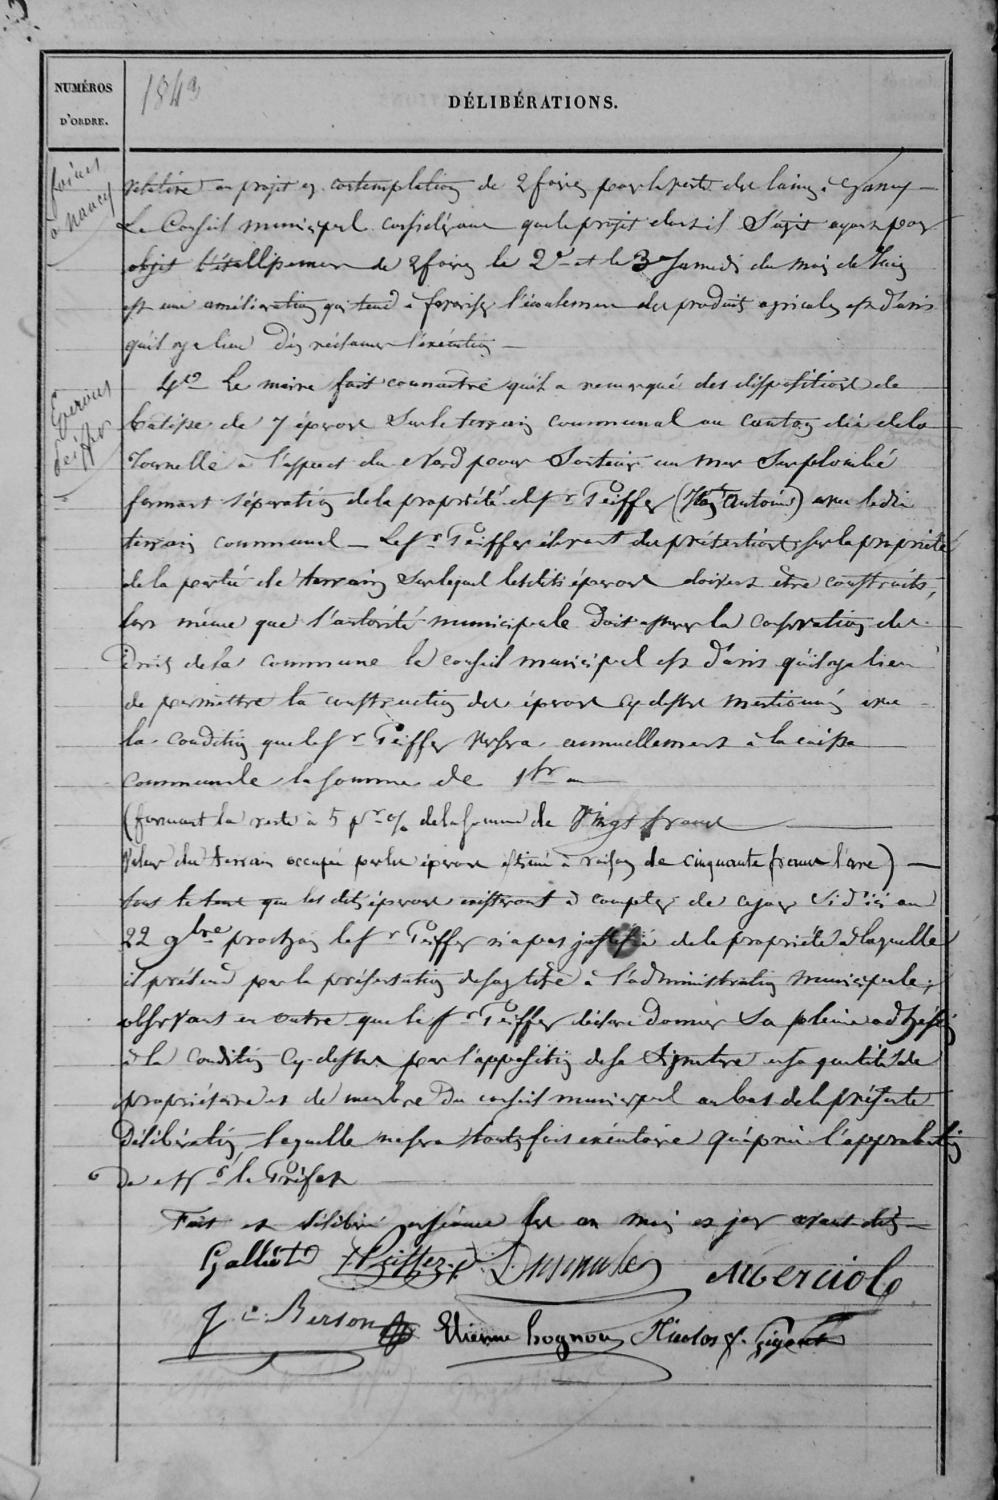 NUMÉROS
D'ORDRE.
1843
DÉLIBÉRATIONS.
foires
à Nancy
relative au projet en contemplation de 2 foires pour la vente des laines à Nancy —
Le Conseil municipal considérant que le projet dont il s'agit ayant pour
objet l'établissement de 2 foires le 2e et le 3e Samedi du mois de Juin
est une amélioration qui tend à favoriser l'écoulement des produits agricoles est d'avis
qu'il y a lieu d'en réclamer l'exécution —
Eperons
Peiffer
4o Le maire fait connaitre qu'il a remarqué des dispositions de
batisse de 7 éperons sur le terrain communal au canton dit de la
Tournelle à l'aspect du Nord pour soutenir un mur surplombé
formant séparation de la propriété del Sr Peiffer (Antoine) avec ledit
terrain communal — Le Sr Peiffer élevant des prétentions sur la propriété
de la partie de terrain sur lequel lesdits éperons doivent être construits,
lors même que l'autorité municipale doit assurer la conservation des
droits de la commune le conseil municipal est d'avis qu'il y a lieu
de permettre la construction des éperons cy dessus mentionnés avec
la condition que le Sr Peiffer versera annuellement à la caisse
communale la somme de 1fr
(formant la rente à 5 pr % de la somme de Vingt francs
valeur du terrain occupée par les éperons estimé à raison de cinquante francs l'are) —
tous le tems que les dits éperons existeront à compter de ce jour si d'ici au
22 9bre prochain le Sr Peiffer n'a pas justifié de la propriété à laquelle
il prétend par la présentation de son titre à l'administration municipale;
observant en outre que le Sr Peiffer déclare donner sa pleine adhésion
à la condition cy-dessus par l'apposition de sa signature en sa qualité de
propriétaire et de membre du conseil municipal au bas de la présente
délibération, laquelle ne sera toutefois exécutoire qu'après l'approbation
de Mr le Préfet
Fait et délibéré en séance les an mois et jour avant dits —
Galliot Peiffer
J C Berson Etienne hognon Nicolas